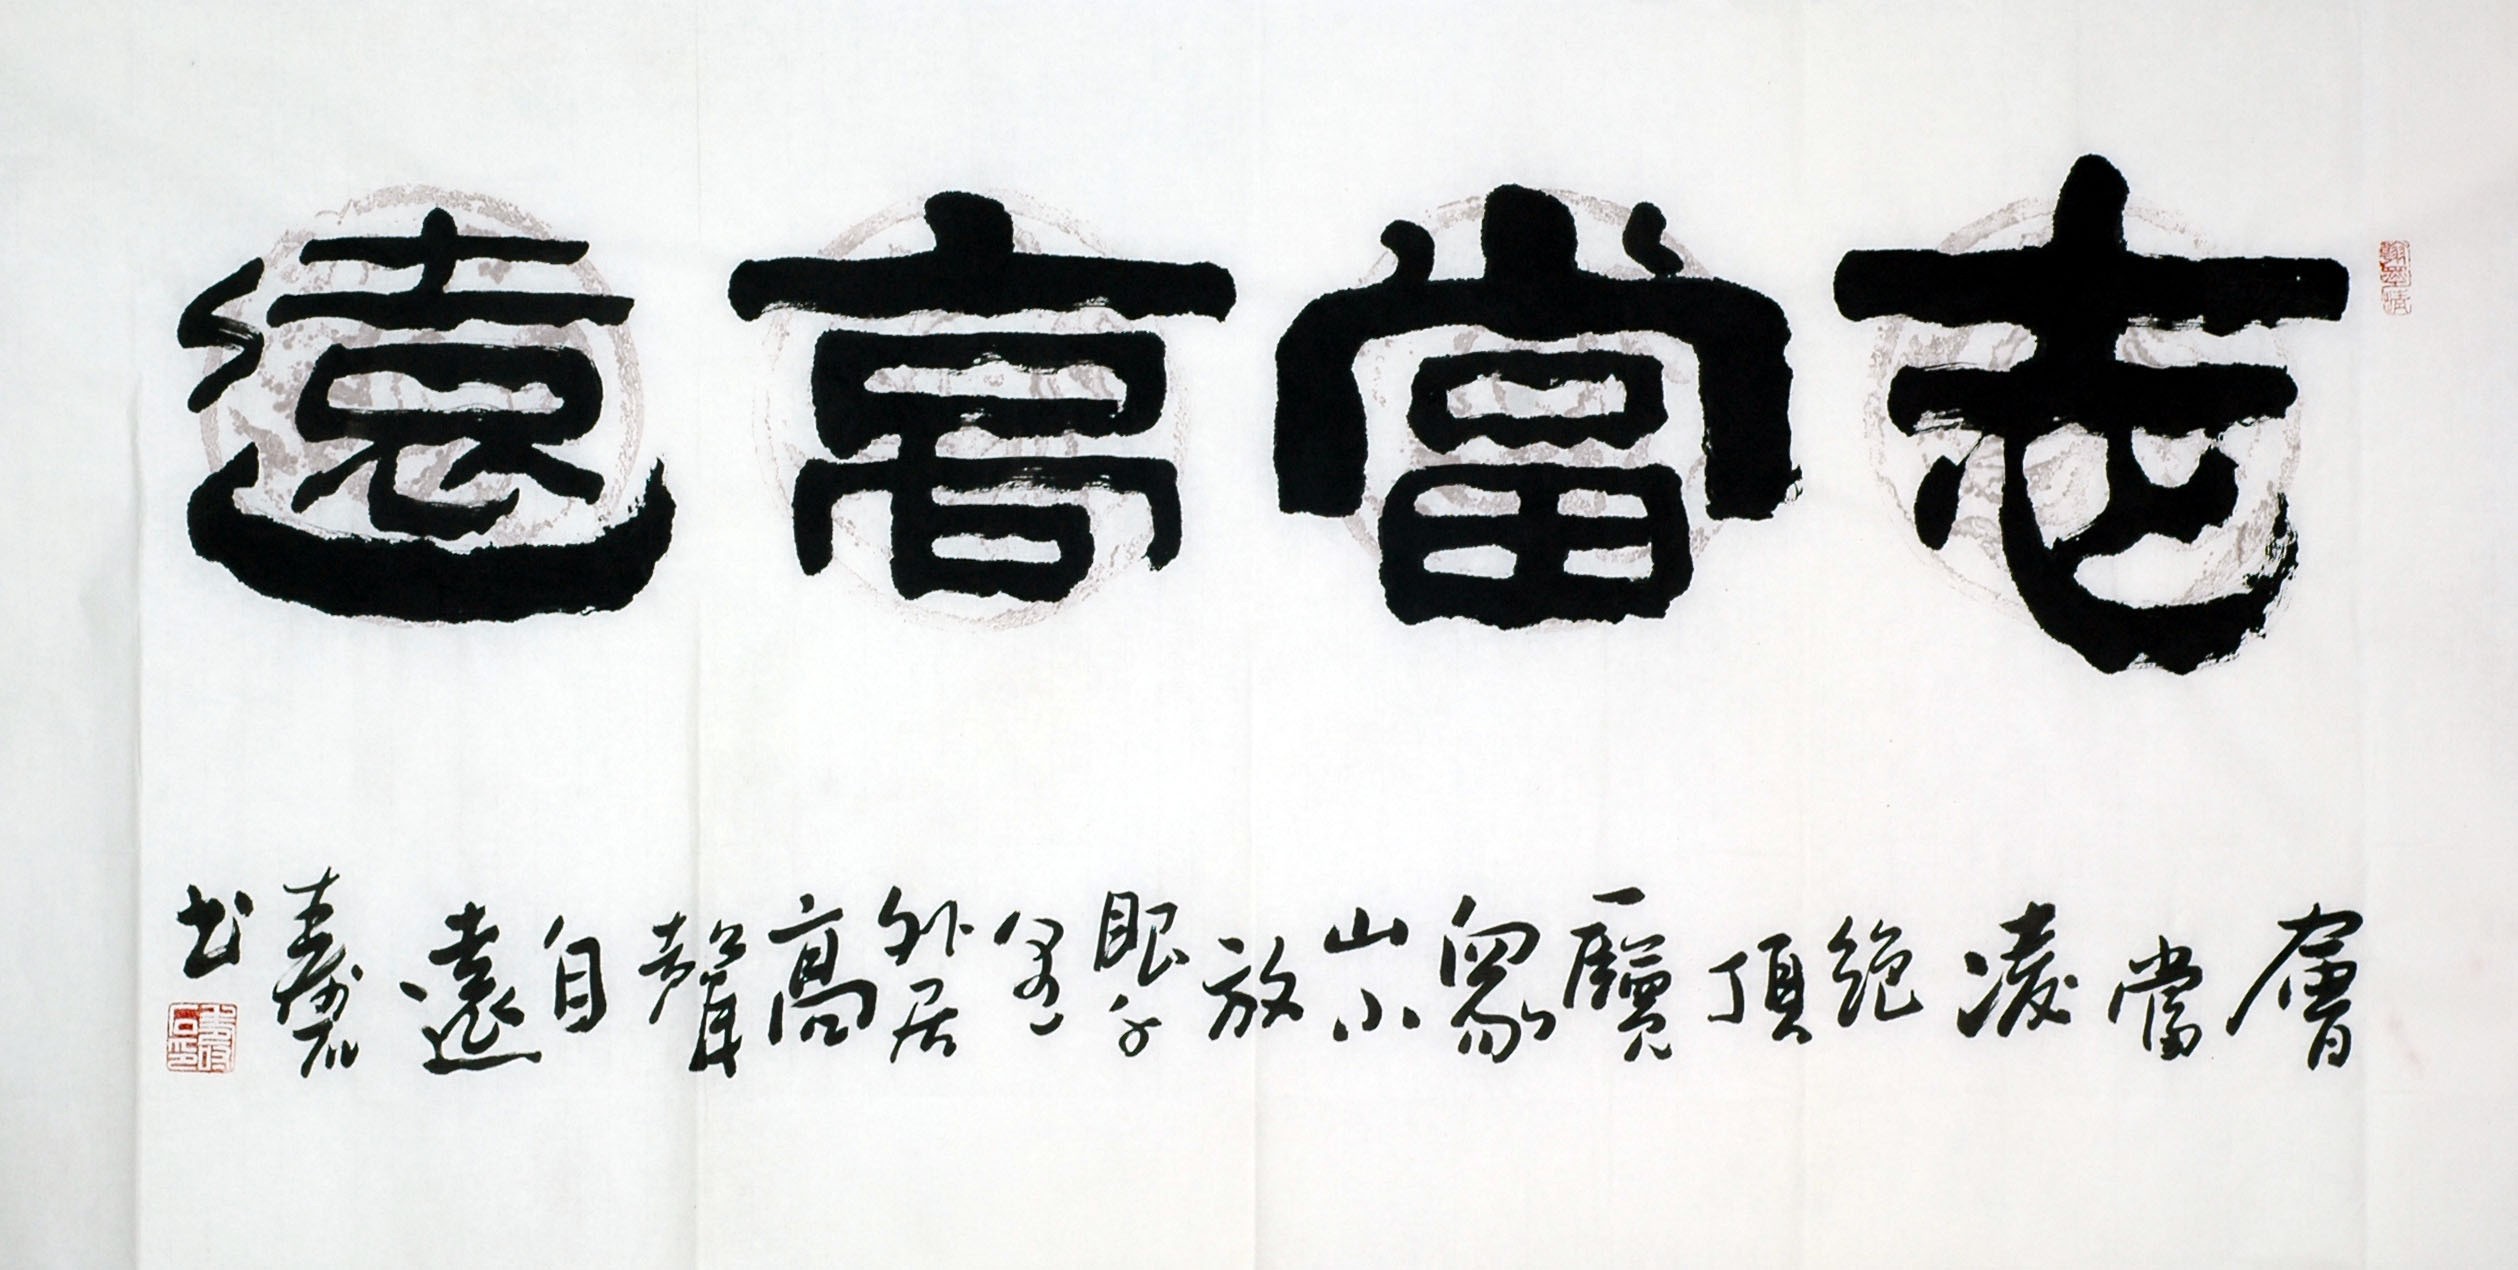 志當高遠
會當凌絕頂一覽衆山小放眼千外居高聲自遠 壽石书